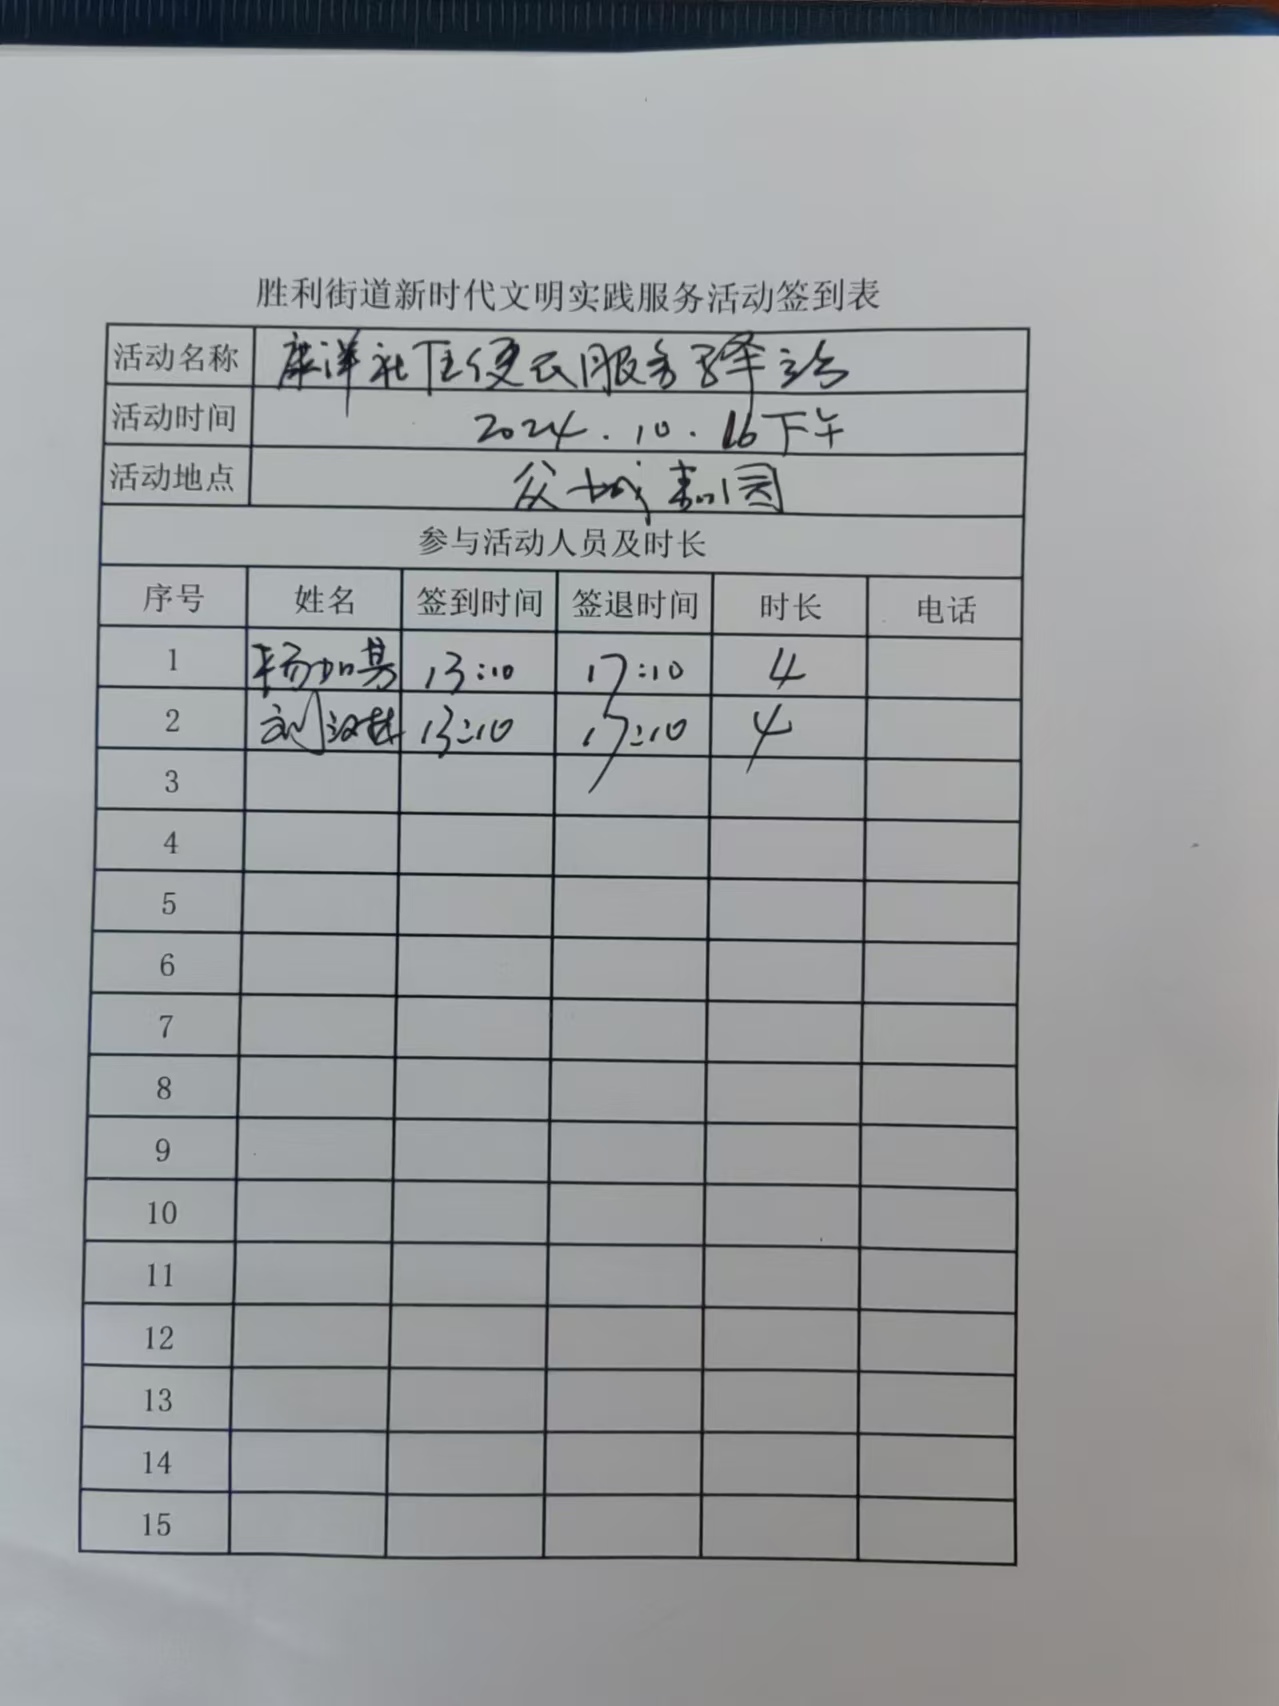 胜利街道新时代文明实践服务活动签到表
活动名称 康洋社区便民服务驿站
活动时间 2024.10.16下午
活动地点 众城和园
参与活动人员及时长
序号 姓名 签到时间 签退时间 时长 电话
1 13:10 17:10 4
2 刘 13:10 17:10 4
3
4
5
6
7
8
9
10
11
12
13
14
15